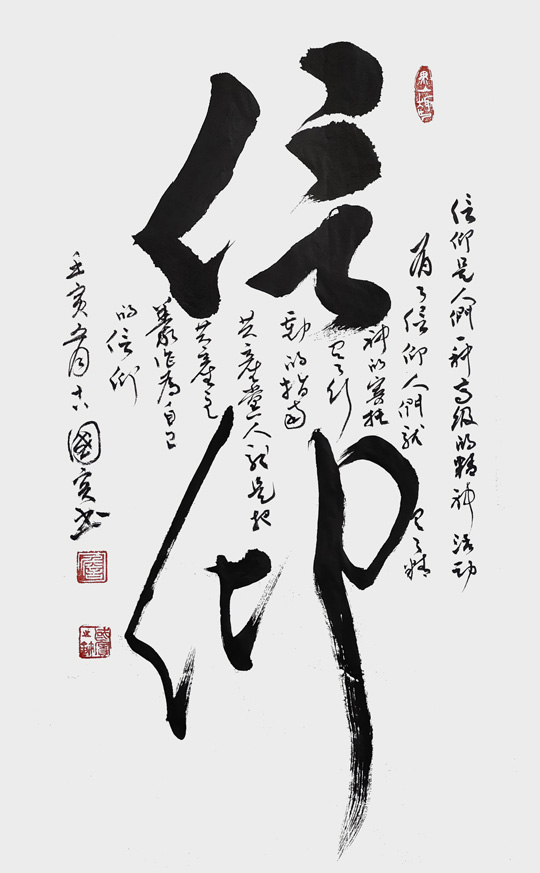 信仰
信仰是人們一种高级的精神活動
有了信仰人們就有了精
神的寄托
有了行
動的指南
共產黨人就是把
共產主
義作為自己
的信仰
壬寅五月十六國書